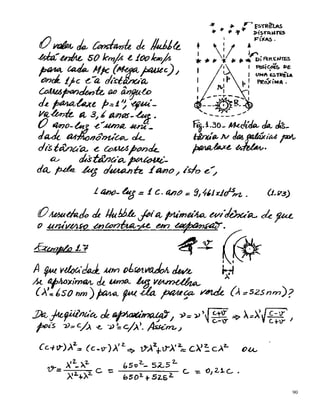 O valor da Constante de Hubble
está entre 50 km/s e 100 km/s
para cada Mpc (Mega parsec),
onde 1pc é a distância
correspondente ao ângulo
de paralaxe p=1", equi-
valente a 3,6 anos-luz.
O ano-luz é uma uni-
dade astronômica de
distância, e corresponde
a distância percorri-
da pela luz durante 1 ano, isto é,
ESTRÊLAS
DISTANTES
FIXAS.
DIFERENTES
POSIÇÕES DE
UMA ESTRÊLA
PRÓXIMA.
Fig.1.30- Medida da dis-
tância das galáxias por
paralaxe estelar.
1 ano-luz = 1 c.ano = 9,461x10¹⁵m. (1.83)
O resultado de Hubble foi a primeira evidência de que
o universo encontra-se em expansão.
Exemplo 1.7
A que velocidade um observador deve
se aproximar de uma luz vermelha
(λ'=650 nm) para que ela pareça verde (λ=525nm)?
Da frequência de aproximação, ν=ν'√(c+v/c-v) ⇒ λ=λ'√(c-v/c+v),
pois ν=c/λ e ν'=c/λ'. Assim,
(c+v)λ²=(c-v)λ'² ⇒ vλ²+vλ'²=cλ'²-cλ² ou
v= λ'²-λ²/λ'²+λ² c = 650²-525²/650²+525² c = 0,21c.
90